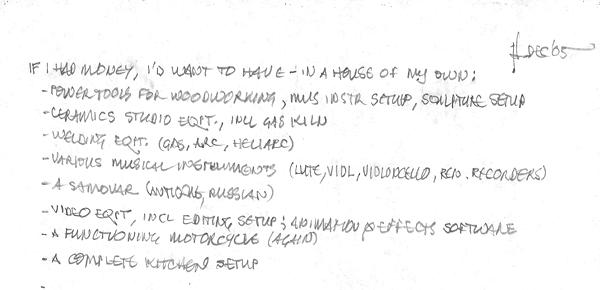 DEC '05
IF I HAD MONEY, I'D WANT TO HAVE - IN A HOUSE OF MY OWN:
- POWER TOOLS FOR WOODWORKING, MUS INSTR SETUP, SCULPTURE SETUP
- CERAMICS STUDIO EQPT., INCL GAS KILN
- WELDING EQPT. (GAS, ARC, HELIARC)
- VARIOUS MUSICAL INSTRUMENTS (LUTE, VIOL, VIOLONCELLO, RECORDERS)
- A SAMOVAR (ANTIQUE, RUSSIAN)
- VIDEO EQPT, INCL EDITING SETUP & ANIMATION EFFECTS SOFTWARE
- A FUNCTIONING MOTORCYCLE (AGAIN)
- A COMPLETE KITCHEN SETUP
-